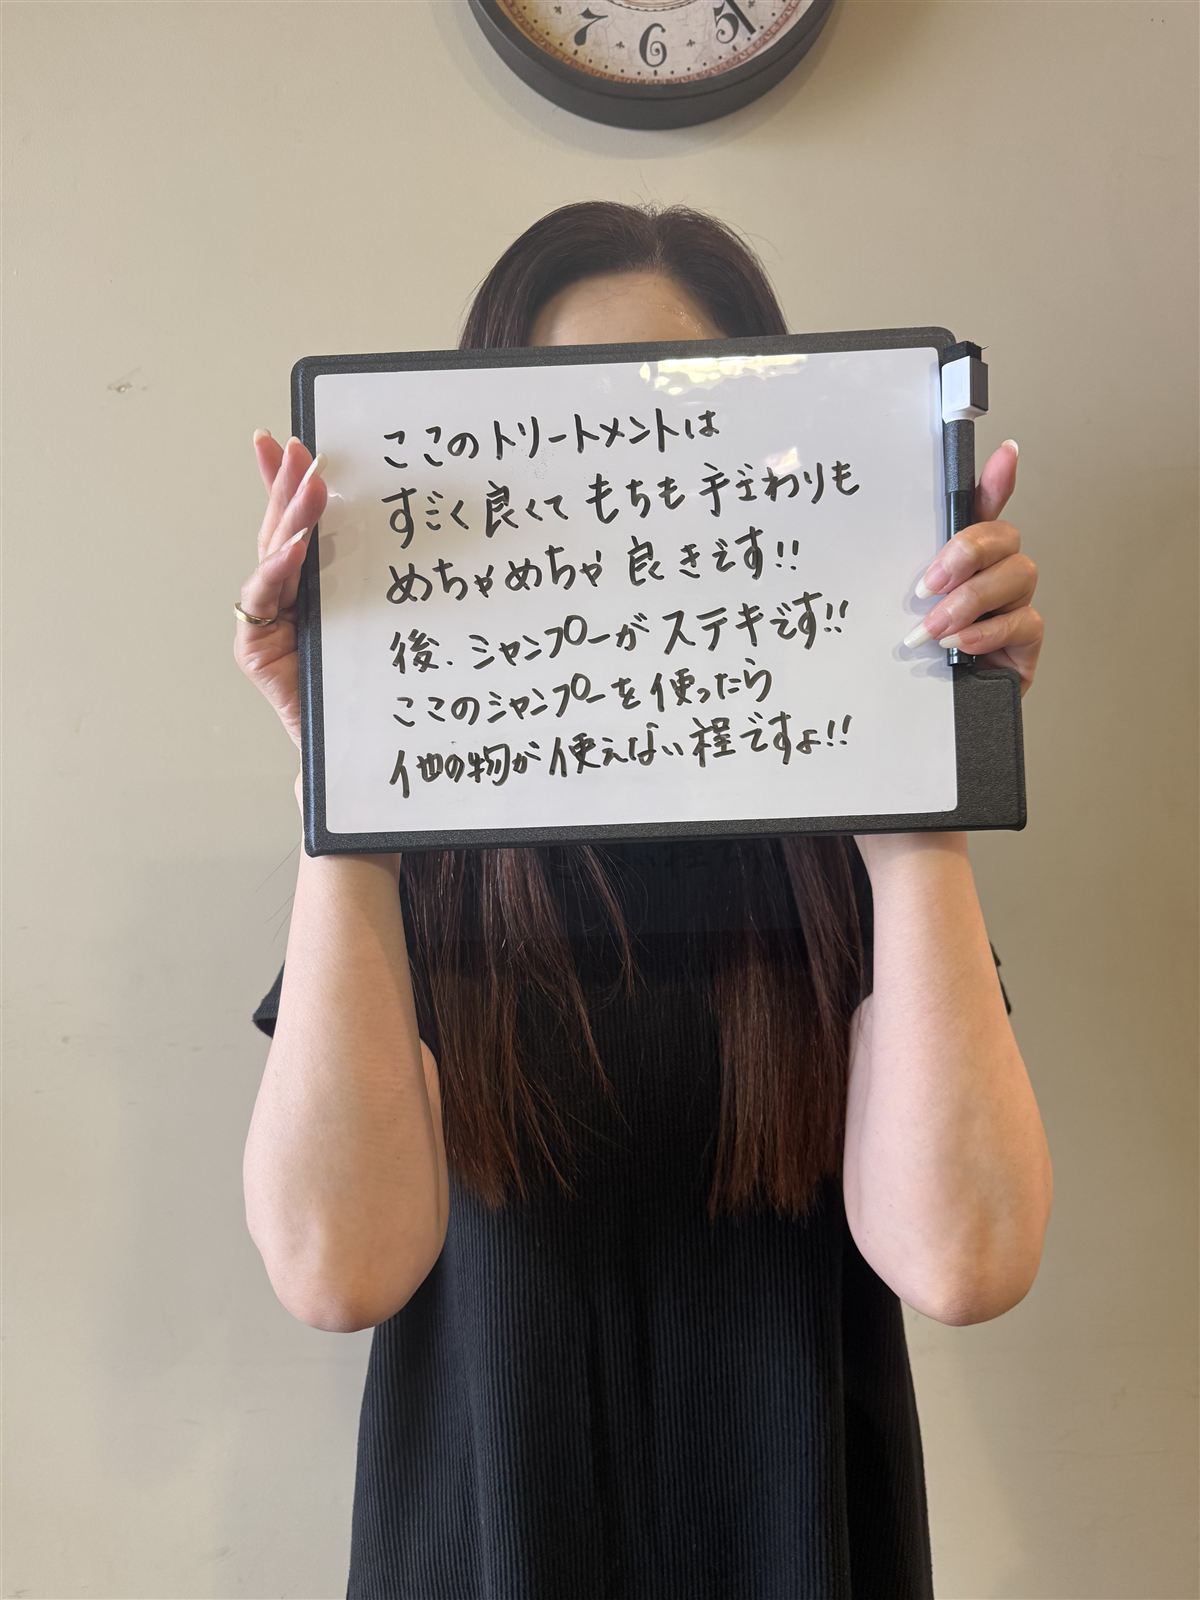 7 6 5
ここのトリートメントは
すごく良くてもちも手ざわりも
めちゃめちゃ良きです!!
後、シャンプーがステキです!!
ここのシャンプーを使ったら
他の物が使えない程ですよ!!